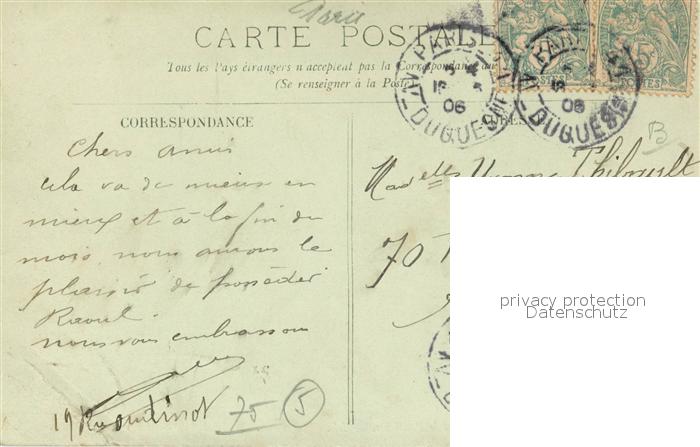 Paris
CARTE POSTALE
Tous les Pays étrangers n'acceptent pas la Correspondance au
(Se renseigner à la Poste)
PARIS
AV. DUQUESNE
06
PARIS
AV. DUQUESNE
06
5
POSTES
CORRESPONDANCE
ADRESSE
B
Chers amis
cela va de mieux en
mieux et à la fin du
mois nous aurons le
plaisir de posséder
Raoul.
nous vous embrassons
19 Rue
75
5
Mademelle Yvonne Thibault
70
privacy protection
Datenschutz